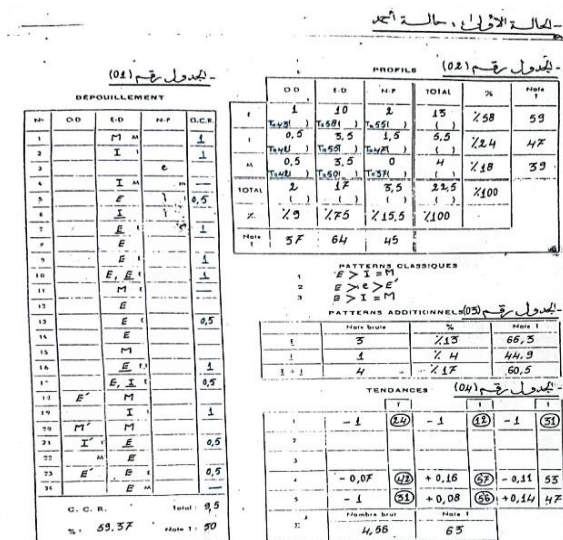 - الحالة الأولى: حالة أحمد
- الجدول رقم (01)
DÉPOUILLEMENT
N° O-D E-D N-P G.C.R.
1 M M 1
2 I 1
3 e
4 I M m —
5 E i 0,5
6 I i —
7 E e 1
8 E
9 E 1
10 E, E 1
11 M —
12 E
13 E 0,5
14 E
15 M
16 E 1
17 E, I 0,5
18 E' M
19 I 1
20 M' M
21 I' E 0,5
22 M E
23 E' E 0,5
24 E M —
G. C. R. Total : 9,5
%. 59.37 Note T : 50
- الجدول رقم (02)
PROFILS
O-D E-D N-P TOTAL % Note T
E 1 10 2 13 % 58 59
T=43( ) T=58( ) T=55( ) ( )
I 0,5 3,5 1,5 5,5 % 24 47
T=42( ) T=55( ) T=47( ) ( )
M 0,5 3,5 0 4 % 18 39
T=42( ) T=50( ) T=37( ) ( )
TOTAL 2 17 3,5 22,5 % 100
( ) ( ) ( ) ( )
% % 9 % 75 % 15,5 % 100
Note T 37 64 45
PATTERNS CLASSIQUES
1 E > I = M
2 E > e > E'
3 E > I = M
PATTERNS ADDITIONNELS الجدول رقم (03)
Note brute % Note T
E 3 % 13 66,3
I 1 % 4 44.9
E + I 4 % 17 60,5
TENDANCES الجدول رقم (04)
T T T
1 - 1 24 - 1 12 - 1 31
2
3
4 - 0,07 42 + 0,16 57 - 0,11 53
5 - 1 31 + 0,08 56 + 0,14 47
Nombre brut Note T
Σ 4,56 63